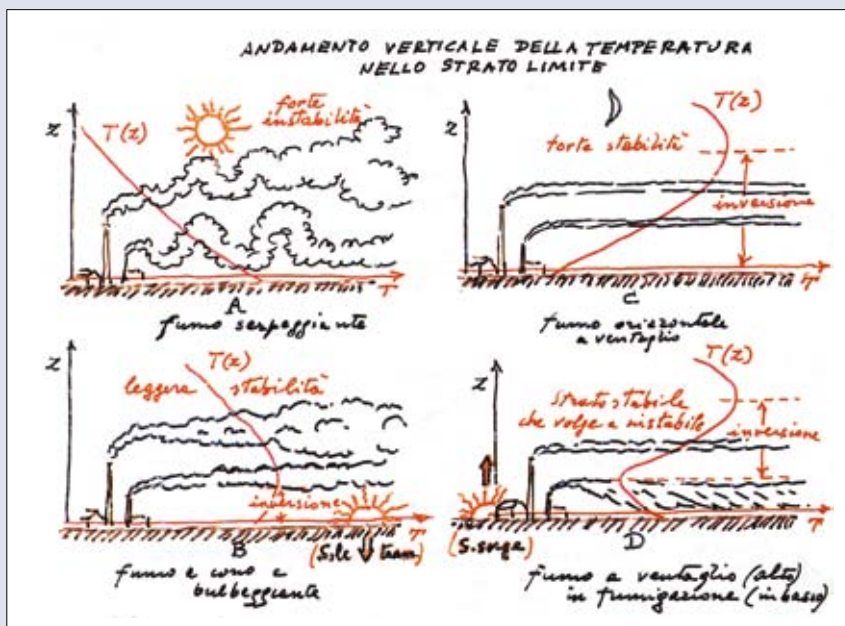 ANDAMENTO VERTICALE DELLA TEMPERATURA
NELLO STRATO LIMITE
Z
T(z)
forte
instabilità
T
A
fumo serpeggiante
Z
T(z)
forte stabilità
inversione
T
C
fumo orizzontale
a ventaglio
Z
T(z)
leggera stabilità
inversione
T
B
(Sole tram)
fumo e cono e
bulbeggiante
Z
T(z)
strato stabile
che volge a instabile
inversione
T
(S. surge)
D
fumo a ventaglio (alto)
in fumigazione (in basso)